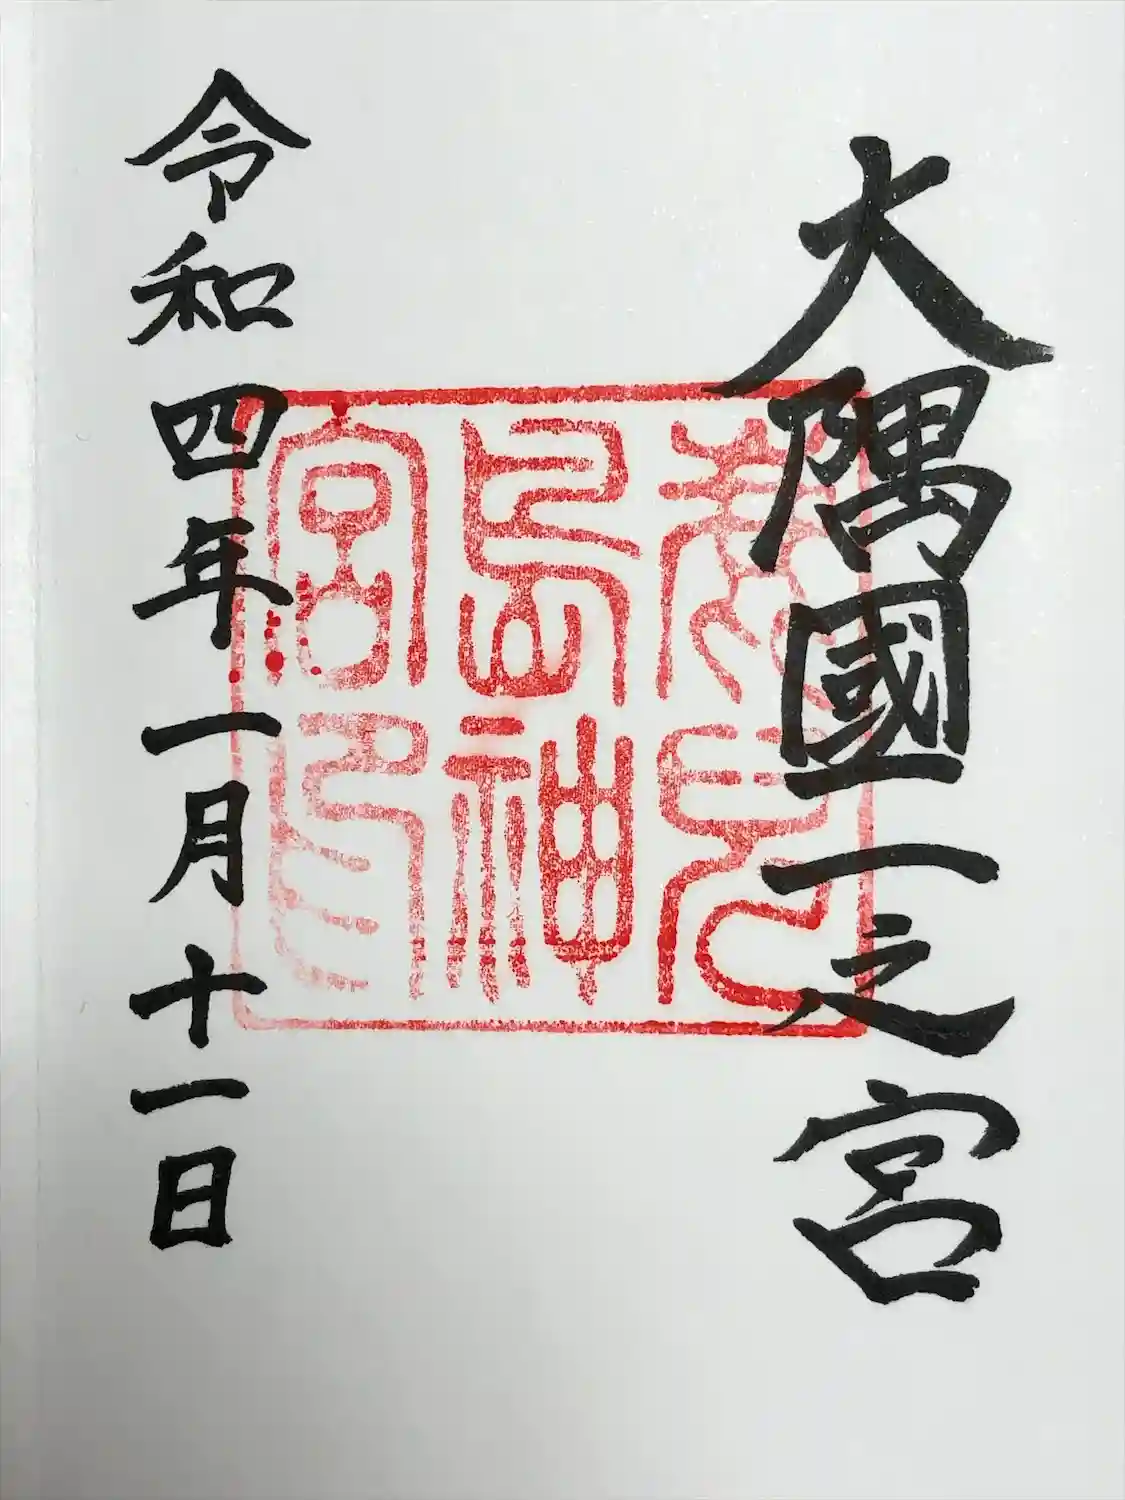 大隅國一之宮
鹿児
島神
宮印
令和四年一月十一日